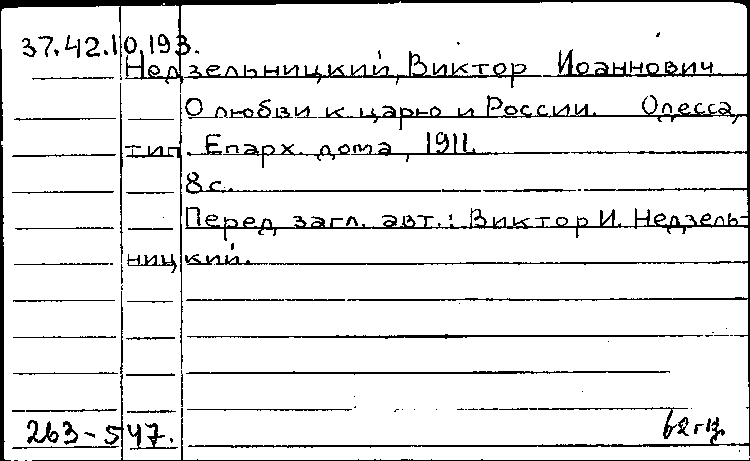 37.42.10.193.
Недзельницкий, Виктор Иоаннович
О любви к царю и России. Одесса,
тип. Епарх. дома, 1911.
8 с.
Перед загл. авт.: Виктор И. Недзель-
ницкий.
263-547.